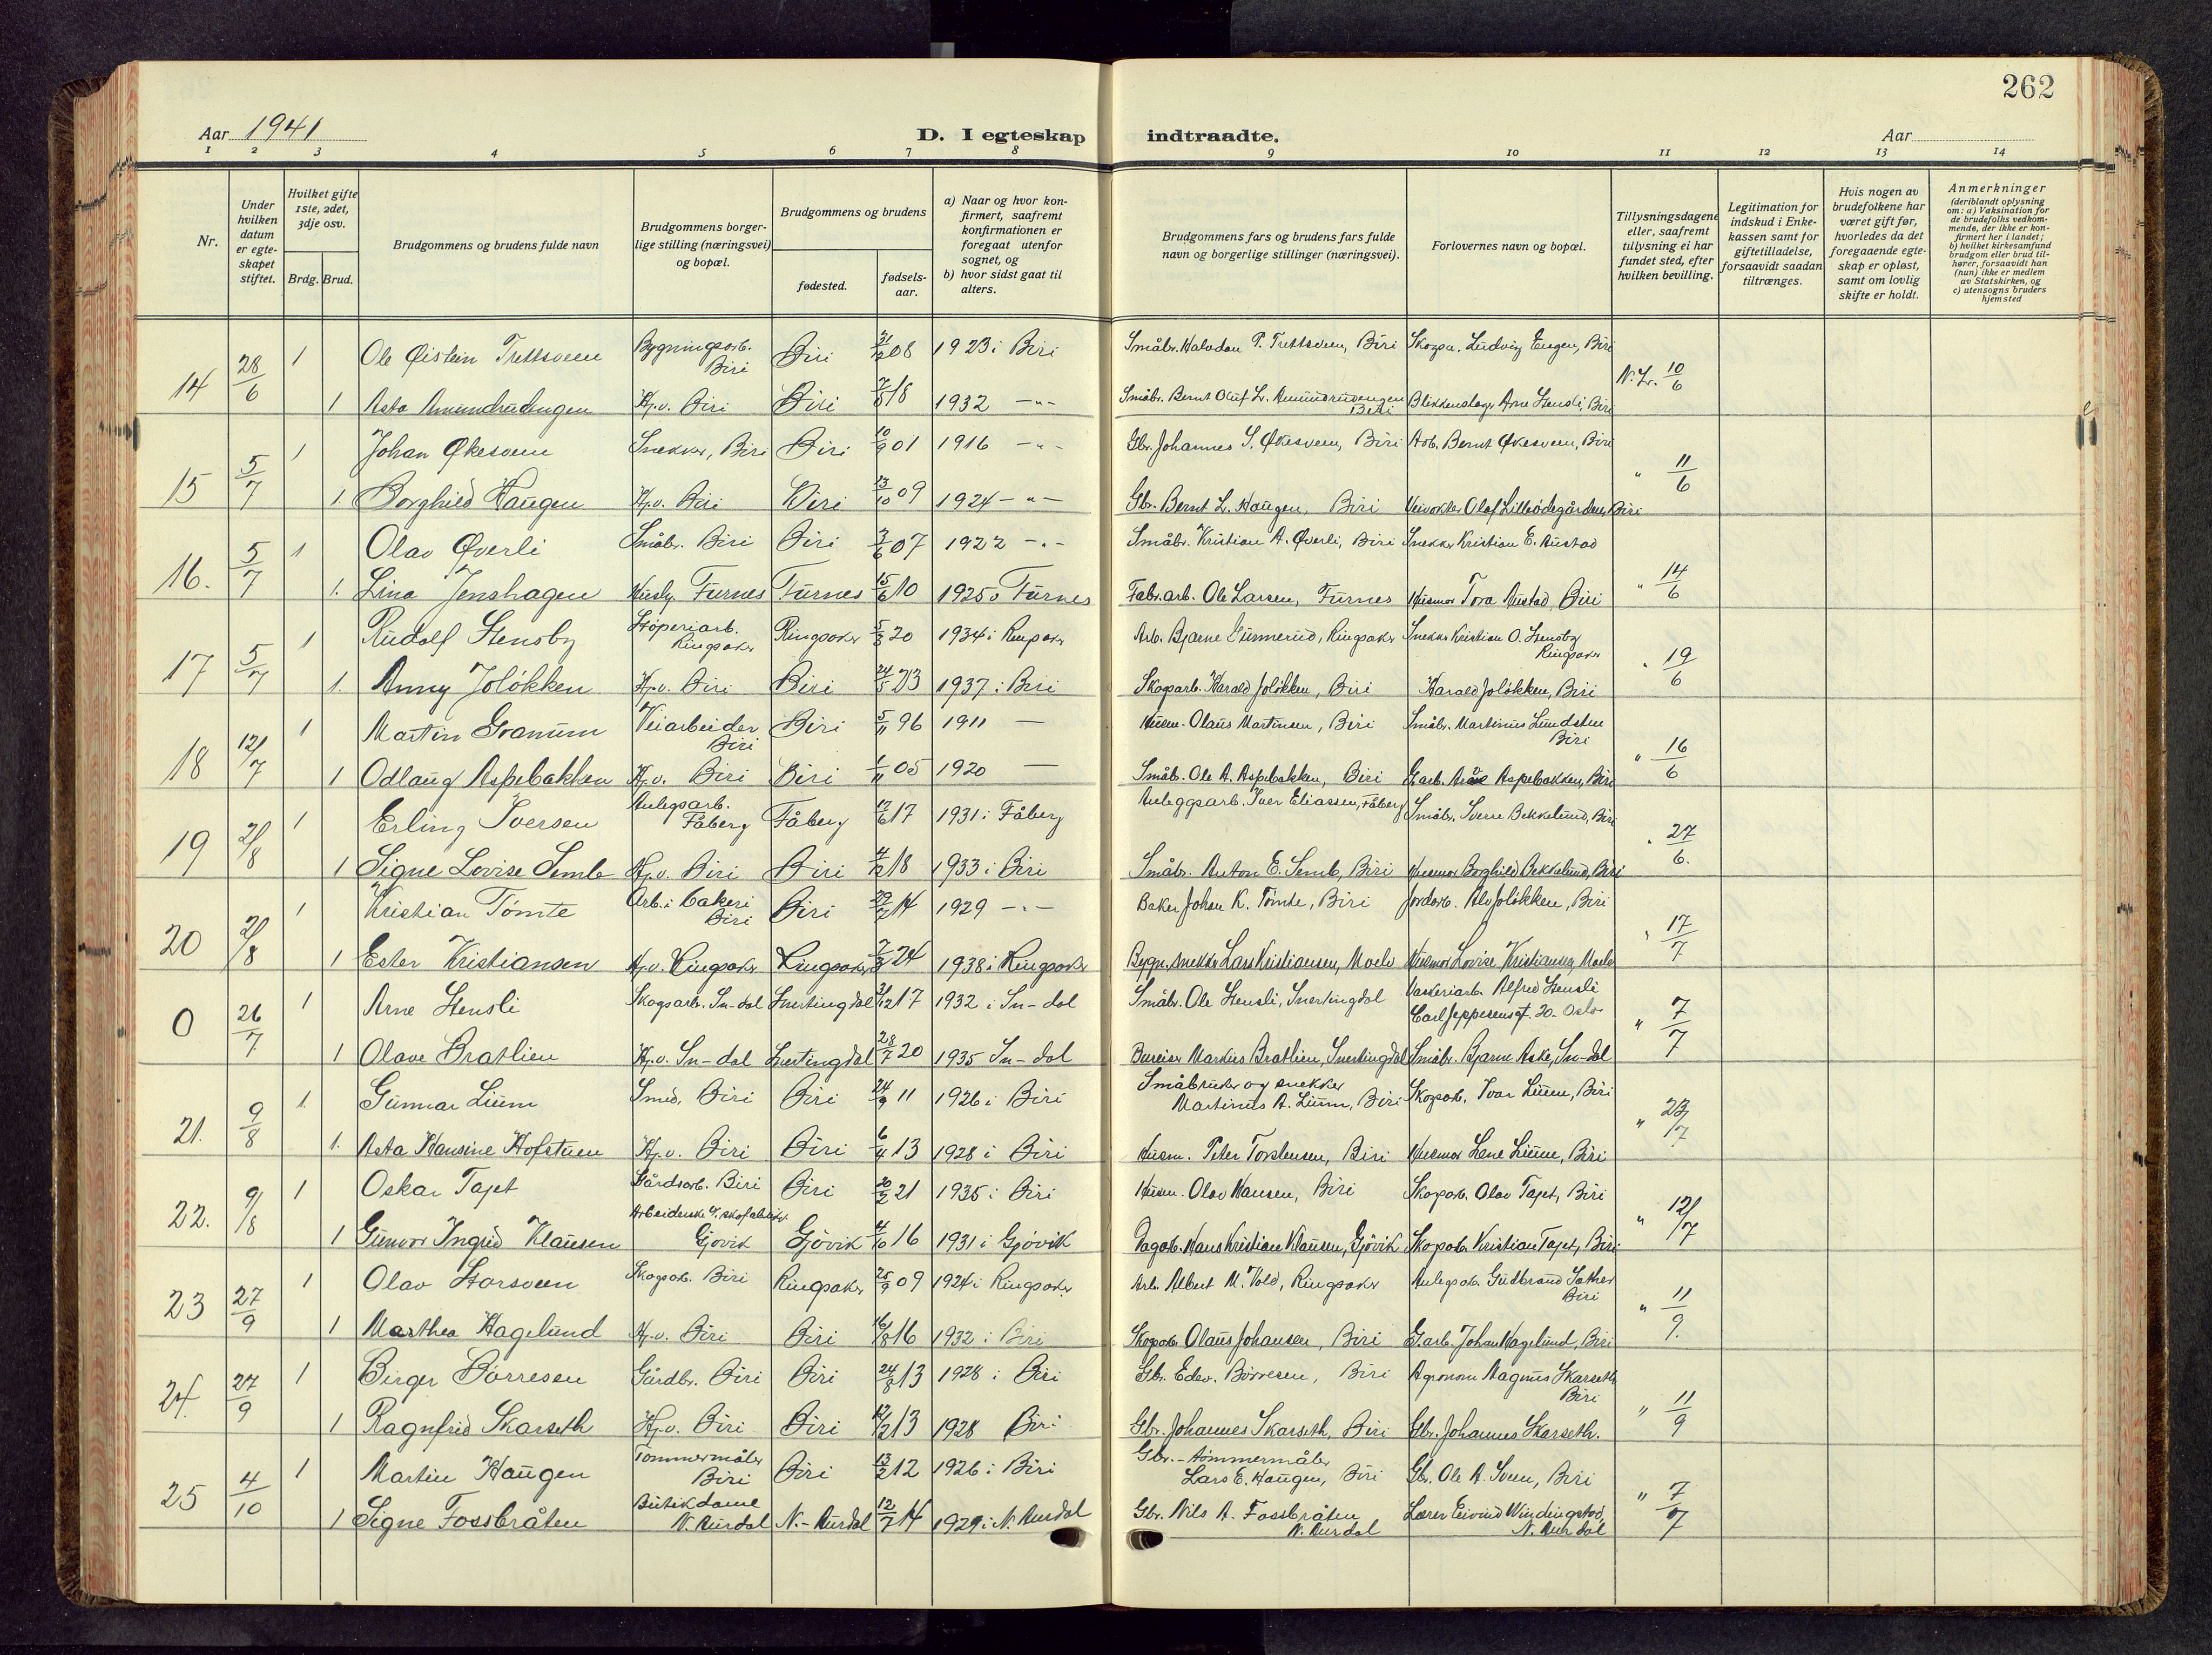 262
Aar 1941
D. I egteskap indtraadte.
Aar
1 2 3 4 5 6 7 8 9 10 11 12 13 14
Nr.
Under hvilken datum er egte-skapet stiftet.
Hvilket gifte 1ste, 2det, 3dje osv.
Brdg. Brud.
Brudgommens og brudens fulde navn
Brudgommens borger-lige stilling (næringsvei) og bopæl.
Brudgommens og brudens
fødested.
fødsels-aar.
a) Naar og hvor kon-firmert, saafremt konfirmationen er foregaat utenfor sognet, og
b) hvor sidst gaat til alters.
Brudgommens fars og brudens fars fulde navn og borgerlige stillinger (næringsvei).
Forlovernes navn og bopæl.
Tillysningsdagene eller, saafremt tillysning ei har fundet sted, efter hvilken bevilling.
Legitimation for indskud i Enke-kassen samt for giftetilladelse, forsaavidt saadan tiltrænges.
Hvis nogen av brudefolkene har været gift før, hvorledes da det foregaaende egte-skap er opløst, samt om lovlig skifte er holdt.
Anmerkninger (deriblandt oplysning om: a) Vaksination for de brudefolks vedkom-mende, der ikke er kon-firmert her i landet; b) hvilket kirkesamfund brudgom eller brud til-hører, forsaavidt han (hun) ikke er medlem av Statskirken, og c) utensogns bruders hjemsted
14 28/6 1 Ole Øistein Trettsveen Bygningsarb. Biri Biri 08 1923 i Biri Småbr. Halvdan P. Trettsveen, Biri Skogsa. Ludvig Engen, Biri N. L. 10/6
1 Asta Amundrudengen Hj.v. Biri Biri 18 1932 -"- Småbr. Bernt Oluf L. Amundrudengen Biri Blikkenslager Arne Stensli, Biri
15 5/7 1 Johan Økesveen Snekker, Biri Biri 10/9 01 1916 -"- Gbr. Johannes S. Økesveen, Biri Arb. Bernt Økesveen, Biri " 11/6
1. Borghild Haugen Hj.v. Biri Biri 23/10 09 1924 -"- Gbr. Bernt L. Haugen, Biri Veivokter Olaf Lilleødegården, Biri
16. 5/7 1 Olav Øverli Småbr. Biri Biri 07 1922 -"- Småbr. Kristian A. Øverli, Biri Snekker Kristian E. Austad " 14/6
1. Lina Jenshagen Furnes Furnes 15/6 10 1925 Furnes Fabr.arb. Ole Larsen, Furnes Husmor Tora Austad, Biri
17 5/7 1 Rudolf Stensby Støperiarb. Ringsaker Ringsaker 20 1934 i Ringsaker Arb. Bjarne Gunnerud, Ringsaker Snekker Kristian O. Stensby Ringsaker " 19/6
1. Anny Joløkken Hj.v. Biri Biri 24/5 23 1937 i Biri Skogsarb. Harald Joløkken, Biri Harald Joløkken, Biri
18 12/7 1 Martin Granum Veiarbeider Biri Biri 5/11 96 1911 — Husm. Olaus Martinsen, Biri Småbr. Martinus Lundsten Biri " 16/6
1 Odlaug Aspebakken Hj.v. Biri Biri 05 1920 — Småb. Ole A. Aspebakken, Biri Aspebakken, Biri
19 2/8 1 Erling Iversen Anlegsarb. Fåberg Fåberg 17 1931 i Fåberg Anleggsarb. Iver Eliassen, Fåberg Småbr. Sverre Bekkelund, Biri " 27/6.
1 Signe Lovise Semb Hj.v. Biri Biri 18 1933 i Biri Småbr. Anton E. Semb, Biri Husmor Borghild Bekkelund, Biri
20 2/8 1 Kristian Tømte Arb. i bakeri Biri Biri 14 1929 -"- Baker Johan K. Tømte, Biri Jordarb. Alv Joløkken, Biri " 17/7
1 Ester Kristiansen Hj.v. Ringsaker Ringsaker 24 1938 i Ringsaker Bygn.snekker Lars Kristiansen, Moelv Husmor Lovise Kristiansen, Moelv
0 26/7 1 Arne Stensli Skogsarb. Sn-dal Snertingdal 17 1932 i Sn-dal Småbr. Ole Stensli, Snertingdal Vaskeriarb. Alfred Stensli Carl Jeppesens gt. 30. Oslo " 7/7
1 Olave Bratlien Hj.v. Sn-dal Snertingdal 28/7 20 1935 Sn-dal Bureiser Markus Bratlien, Snertingdal Småbr. Bjarne Aske, Sn-dal
21. 9/8 1. Gunnar Lium Smed, Biri Biri 24/9 11 1926 i Biri Småbruker og snekker Martinus A. Lium, Biri Skogsarb. Ivar Lium, Biri " 23/7
1. Asta Hansine Hofstuen Hj.v. Biri Biri 6/4 13 1928 i Biri Husm. Peter Torstensen, Biri Husmor Lene Lium, Biri
22. 9/8 1 Oskar Tajet Gårdsarb. Biri Biri 21 1935 i Biri Husm. Olav Hansen, Biri Skogsarb. Olav Tajet, Biri " 12/7
1 Gunvor Ingrid Klausen Arbeiderske v. skofabrikk Gjøvik Gjøvik 16 1931 i Gjøvik Dagarb. Hans Kristian Klausen, Gjøvik Skogsarb. Kristian Tajet, Biri
23 27/9 1 Olav Storsveen Skogsarb. Biri Ringsaker 25/9 09 1924 i Ringsaker Arb. Albert M. Vold, Ringsaker Anlegsarb. Gudbrand Sæther Biri " 11/9.
1 Marthea Hagelund Hj.v. Biri Biri 16/8 16 1932 i Biri Skogsarb. Olaus Johansen, Biri G.arb. Johan Hagelund, Biri
24. 27/9 1 Birger Børresen Gårdbr. Biri Biri 24/8 13 1928 i Biri Gbr. Edv. Børresen, Biri Agronom Magnus Skarseth Biri " 11/9
1 Ragnfrid Skarseth Hj.v. Biri Biri 12/2 13 1928 Biri Gbr. Johannes Skarseth, Biri Gbr. Johannes Skarseth.
25 4/10 1 Martin Haugen Tømmermåler Biri Biri 13/2 12 1926 i Biri Gbr. - tømmermåler Lars E. Haugen, Biri Gbr. Ole A. Sveen, Biri " 7/7
1 Signe Fossbråten Butikdame N. Aurdal N.-Aurdal 12/7 14 1929 i N. Aurdal Gbr. Nils A. Fossbråten N. Aurdal Lærer Eivind Windingstad, N. Aurdal